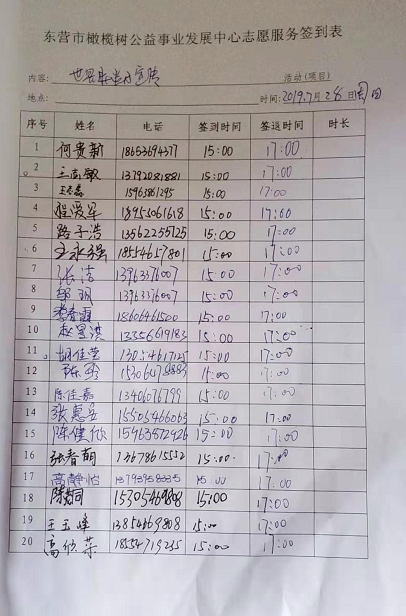 东营市橄榄树公益事业发展中心志愿服务签到表
内容: 世界 宣传 活动(项目)
地点: 时间: 2019.7月28日周日
序号 姓名 电话 签到时间 签退时间 时长
1 何贵新 18653694377 15:00 17:00
2 13792081881 15:00 17:00
3 15963861295 15:00 17:00
4 程爱军 18955061618 15:00 17:00
5 路子浩 13562255725 15:00 17:00
6 王永强 18554657801 15:00 17:00
7 张洁 13963376007 15:00 17:00
8 13963376007 15:00 17:00
9 李春霞 18606461500 15:00 17:00
10 赵景淇 13356619183 15:00 17:00
11 胡佳莹 13054617125 15:00 17:00
12 陈 15:00 17:00
13 陈佳嘉 13406076799 15:00 17:00
14 张惠 15505466063 15:00 17:00
15 陈健欣 15963572926 15:00 17:00
16 张春朝 13678615552 15:00 17:00
17 高静怡 15:00 17:00
18 陈 15305469808 15:00 17:00
19 王玉峰 13854669808 15:00 17:00
20 高欣荣 18554719235 15:00 17:00